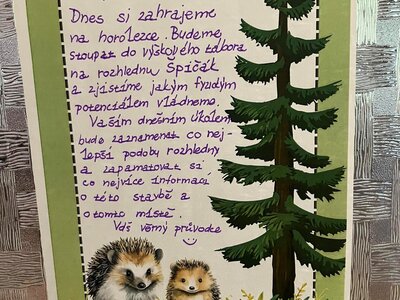 Dnes si zahrajeme
na horolezce. Budeme
stoupat do výškového tábora
na rozhlednu Špičák
a zjistíme jakým fyzickým
potenciálem vládneme.
Vaším dnešním úkolem
bude zaznamenat co nej-
lepší podoby rozhledny
a zapamatovat si
co nejvíce informací
o této stavbě a
o tomto místě.
Váš věrný průvodce